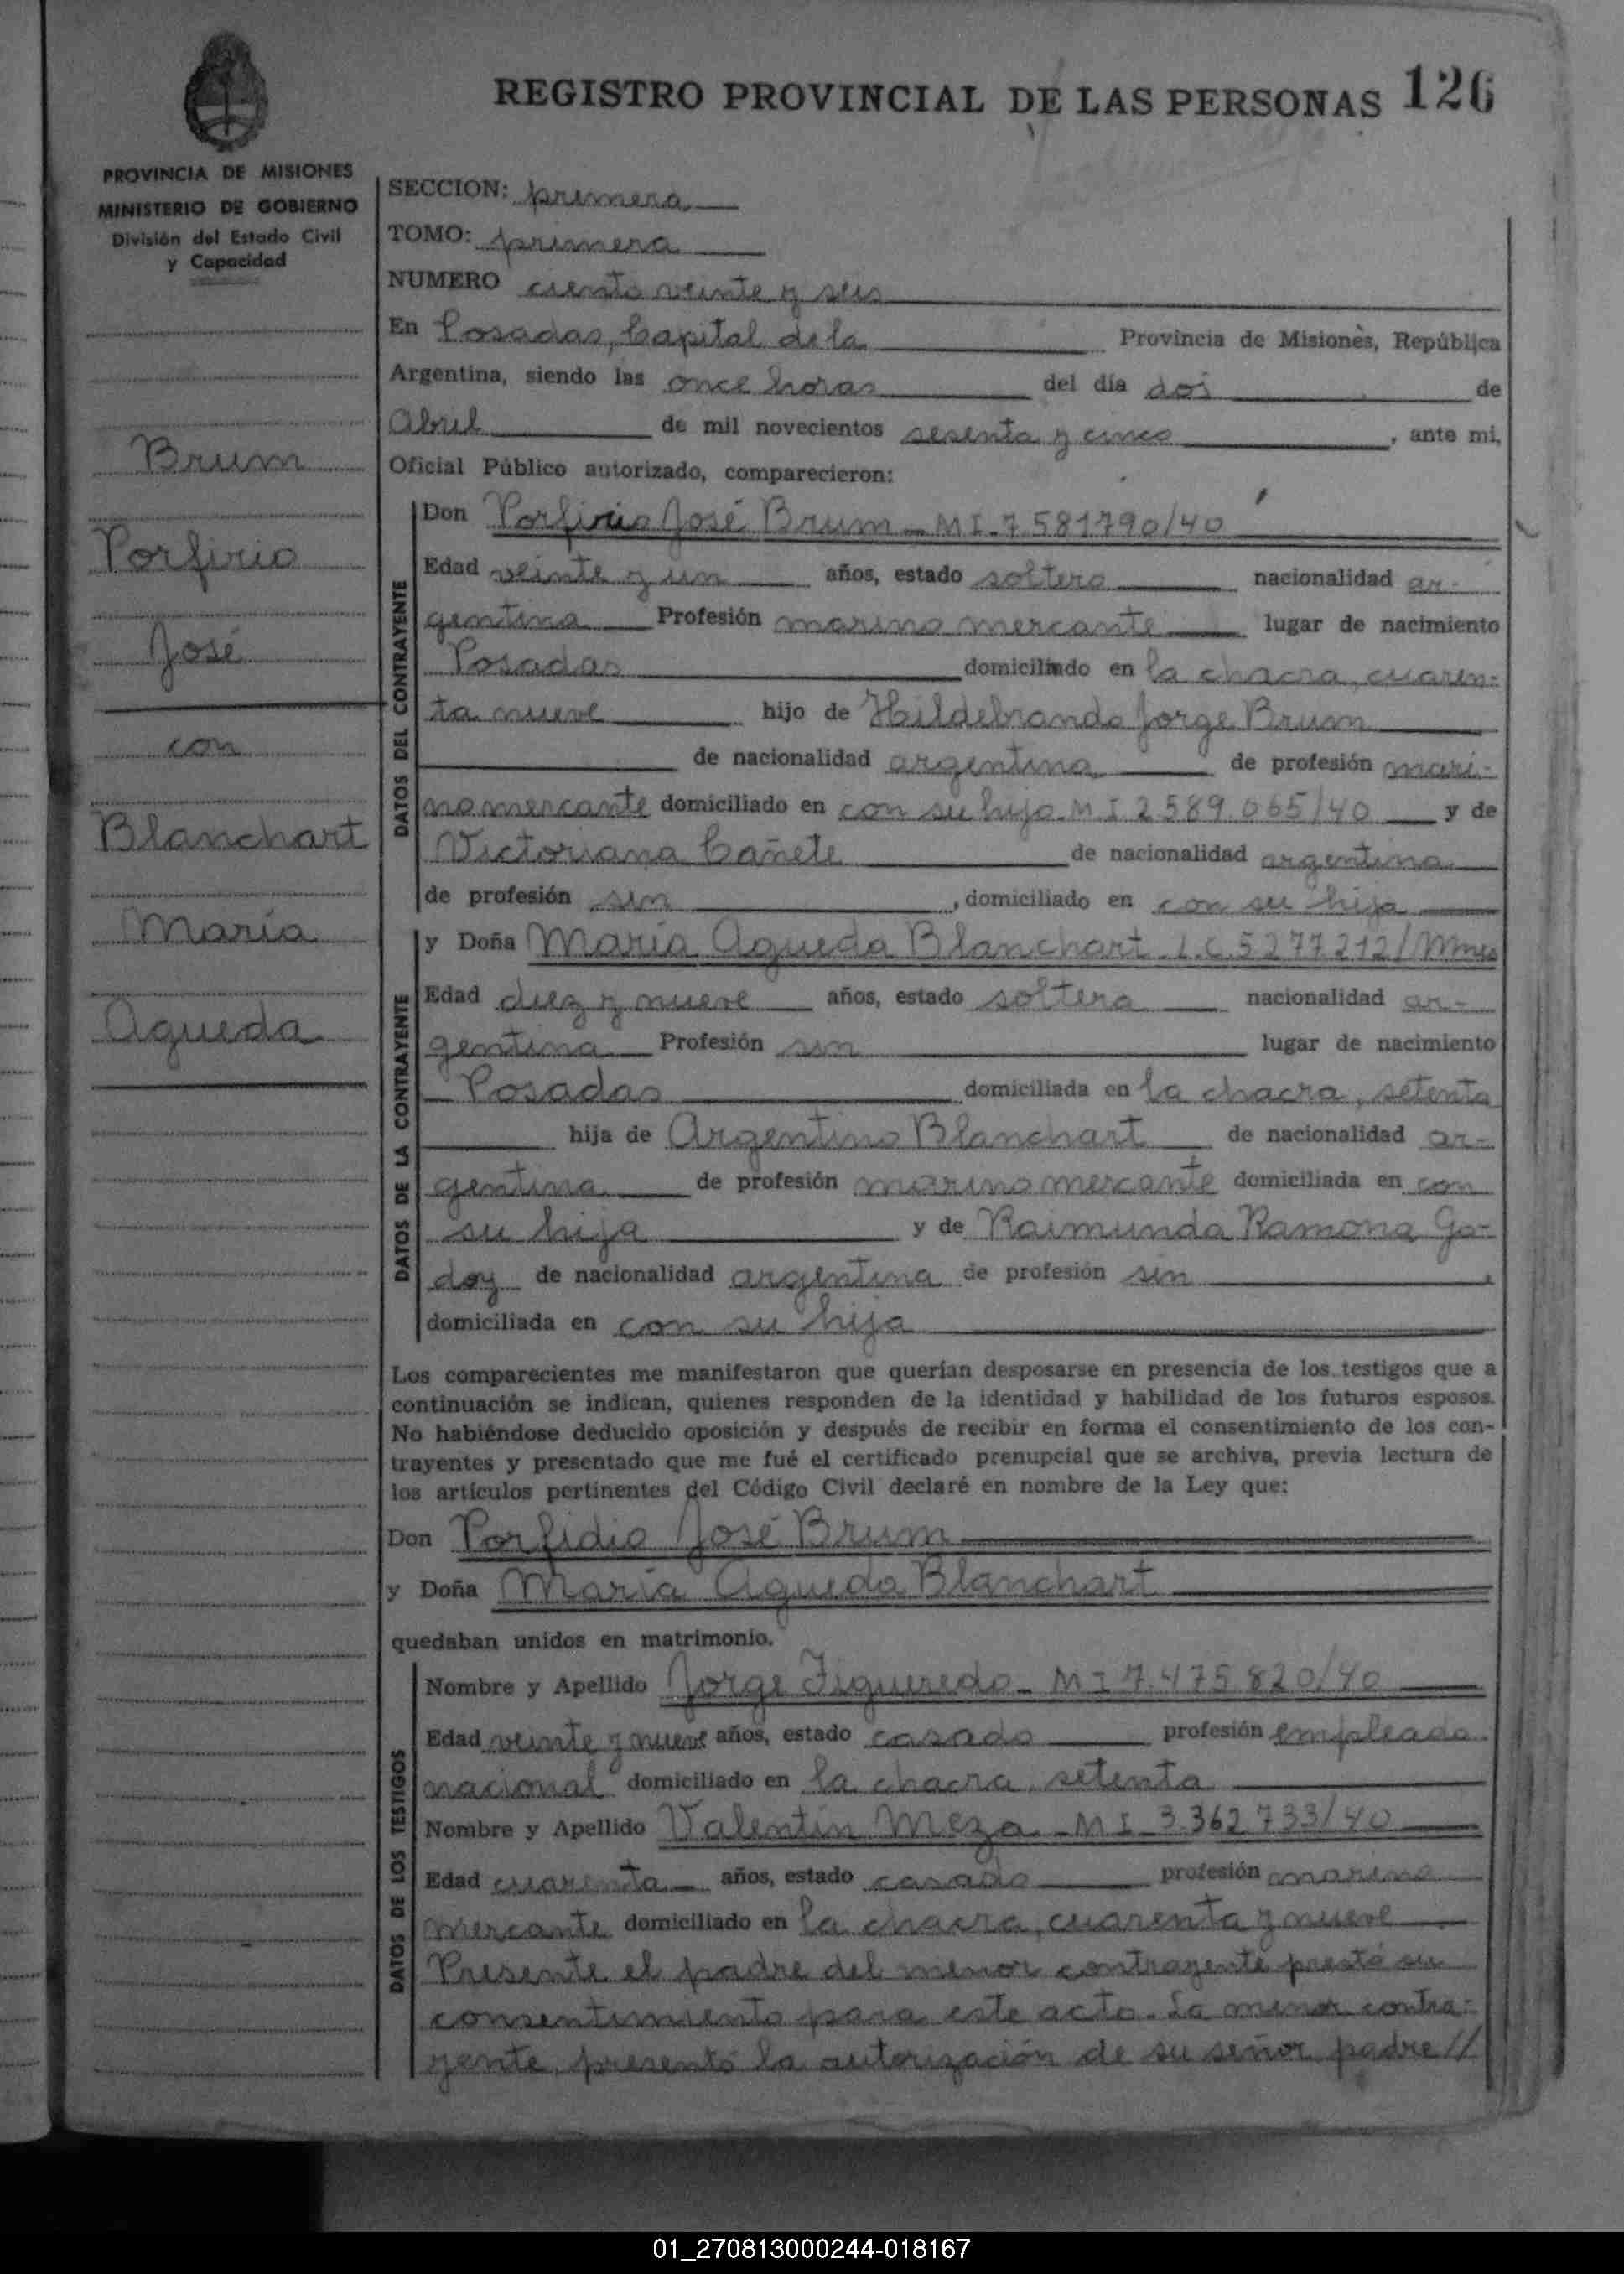 REGISTRO PROVINCIAL DE LAS PERSONAS 126
PROVINCIA DE MISIONES
MINISTERIO DE GOBIERNO
División del Estado Civil
y Capacidad
Brum
Porfirio
José
con
Blanchart
María
Agueda
SECCION: primera
TOMO: primera
NUMERO ciento veinte y seis
En Posadas, Capital de la Provincia de Misiones, República
Argentina, siendo las once horas del día dos de
Abril de mil novecientos sesenta y cinco, ante mi,
Oficial Público autorizado, comparecieron:
DATOS DEL CONTRAYENTE
Don Porfirio José Brum - M I - 7.581790/40
Edad veinte y un años, estado soltero nacionalidad ar-
gentina Profesión marino mercante lugar de nacimiento
Posadas domiciliado en la chacra, cuaren-
ta nueve hijo de Hildebrando Jorge Brum
de nacionalidad argentina de profesión mari-
no mercante domiciliado en con su hijo. M.I 2.589.065/40 y de
Victoriana Cañete de nacionalidad argentina
de profesión sin, domiciliado en con su hija
DATOS DE LA CONTRAYENTE
y Doña María Agueda Blanchart. L.C. 5277212/Mnes
Edad diez y nueve años, estado soltera nacionalidad ar-
gentina Profesión sin lugar de nacimiento
Posadas domiciliada en la chacra, setenta
hija de Argentino Blanchart de nacionalidad ar-
gentina de profesión marino mercante domiciliada en con
su hija y de Raimunda Ramona Go-
doy de nacionalidad argentina de profesión sin,
domiciliada en con su hija
Los comparecientes me manifestaron que querían desposarse en presencia de los testigos que a
continuación se indican, quienes responden de la identidad y habilidad de los futuros esposos.
No habiéndose deducido oposición y después de recibir en forma el consentimiento de los con-
trayentes y presentado que me fué el certificado prenupcial que se archiva, previa lectura de
los artículos pertinentes del Código Civil declaré en nombre de la Ley que:
Don Porfidio José Brum
y Doña María Agueda Blanchart
quedaban unidos en matrimonio.
DATOS DE LOS TESTIGOS
Nombre y Apellido Jorge Figueredo - M I 7.475.820/40
Edad veinte y nueve años, estado casado profesión empleado
nacional domiciliado en la chacra setenta
Nombre y Apellido Valentín Meza - M I - 3.362.733/40
Edad cuarenta años, estado casado profesión marino
mercante domiciliado en la chacra, cuarenta y nueve
Presente el padre del menor contrayente prestó su
consentimiento para este acto. La menor contra-
yente, presentó la autorización de su señor padre //
01_270813000244-018167